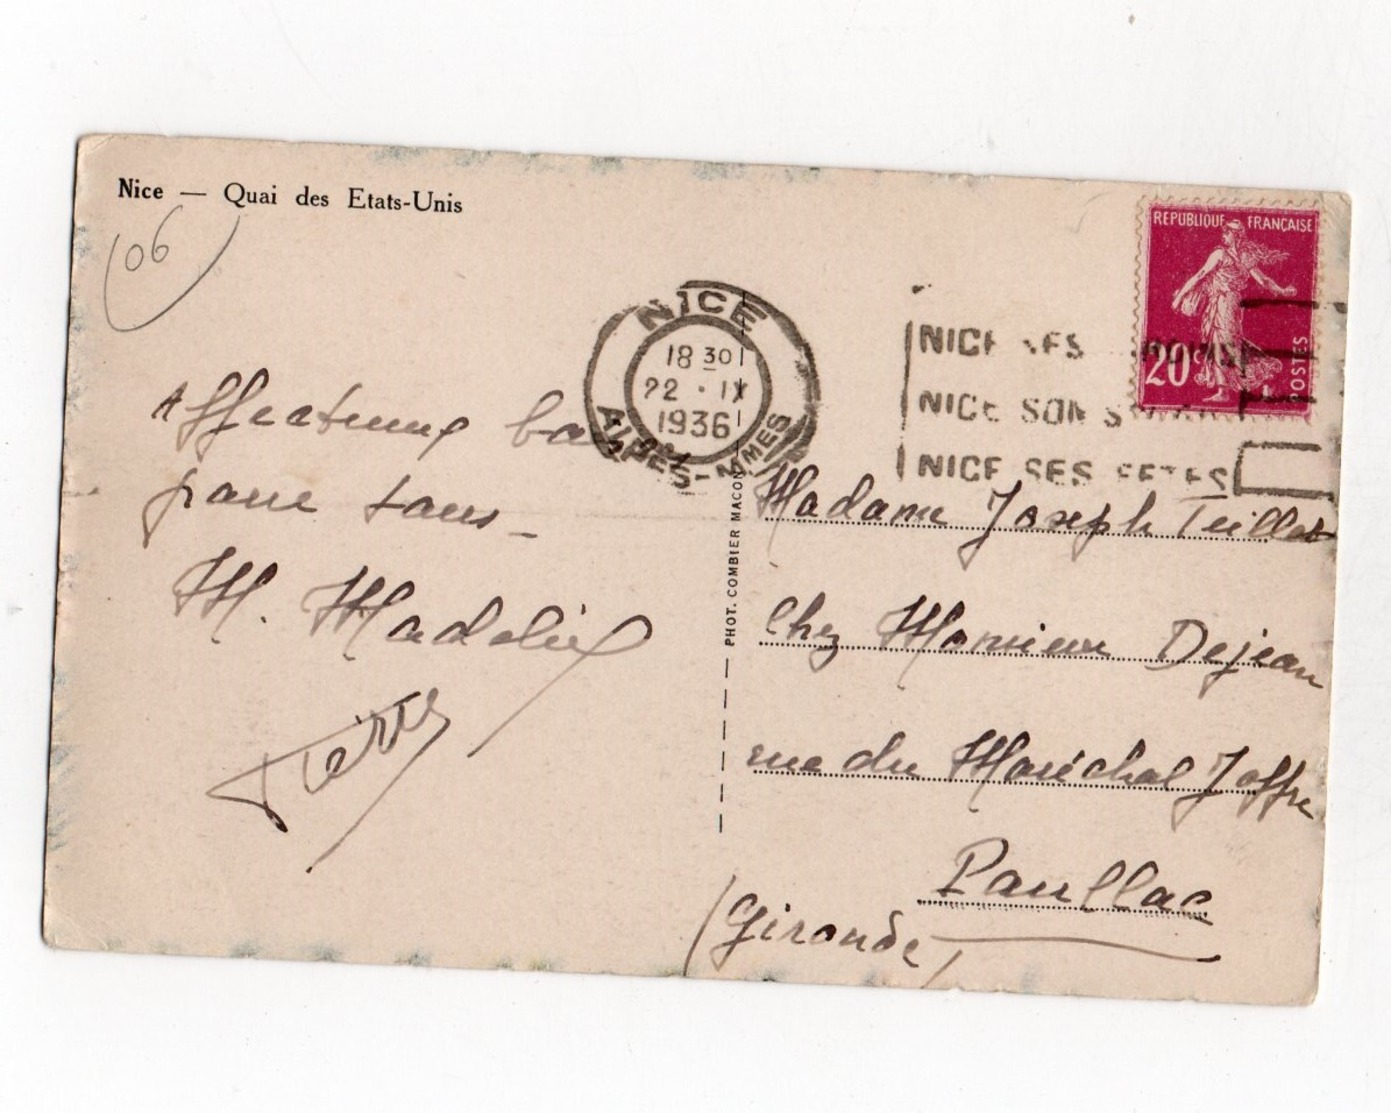 Nice — Quai des Etats-Unis
(06)
REPUBLIQUE FRANÇAISE
20c
POSTES
NICE
18 30
22 · IX
1936
ALPES-MMES
NICE SES
NICE SON
NICE SES FETES
Affectueux
pour tous
M. Madelin
Pierre
PHOT. COMBIER MACON
Madame Joseph Teillet
Chez Monsieur Dejean
rue du Maréchal Joffre
Pauillac
(Gironde)